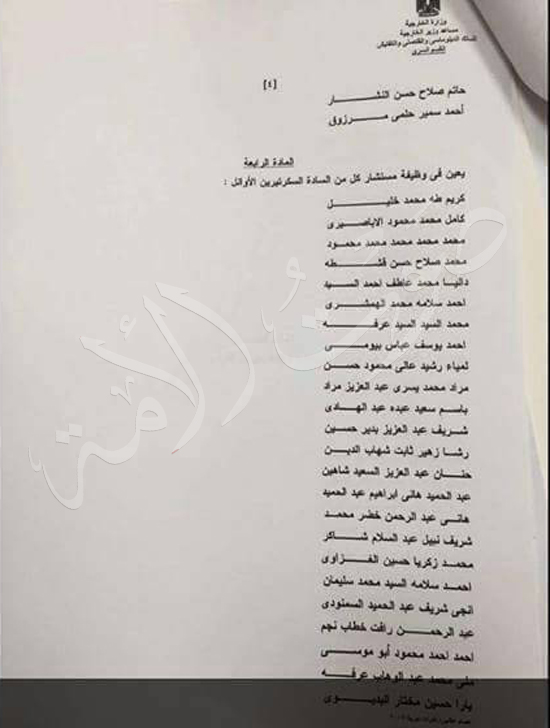 وزارة الخارجية
مساعد وزير الخارجية
للسلك الدبلوماسى والقنصلى والتفتيش
القسم السرى
[٤]
حاتم صلاح حسن النشـــــــــار
أحمد سمير حلمى مـــــــرزوق
المادة الرابعة
يعين فى وظيفة مستشار كل من السادة السكرتيرين الأوائل :
كريم طه محمد خليـــــــــل
كامل محمد محمود الاباصيرى
محمد محمد محمد محمد محمود
محمد صلاح حسن قشـــــطه
داليا محمد عاطف احمد السيد
احمد سلامه محمد الهمشرى
محمد السيد السيد عرفـــــــه
احمد يوسف عباس بيومـــى
لمياء رشيد عالى محمود حسن
مراد محمد يسرى عبد العزيز مراد
باسم سعيد عبده عبد الهـــادى
شريف عبد العزيز بدير حسين
رشا زهير ثابت شهاب الديــن
حنــان عبد العزيز السعيد شاهين
عبد الحميد هانى ابراهيم عبد الحميد
هانى عبد الرحمن خضر محمــد
شريف نبيل عبد السلام شـــاكر
محمـد زكريا حسين الغــزاوى
احمـد سلامه السيد محمد سليمان
انجى شريف عبد الحميد السمنودى
عبد الرحمــــن رافت خطاب نجم
احمد احمد محمود أبو موســـى
منى محمد عبد الوهاب عرفـــه
يارا حسين مختار البديـــوى
صوت الأمة